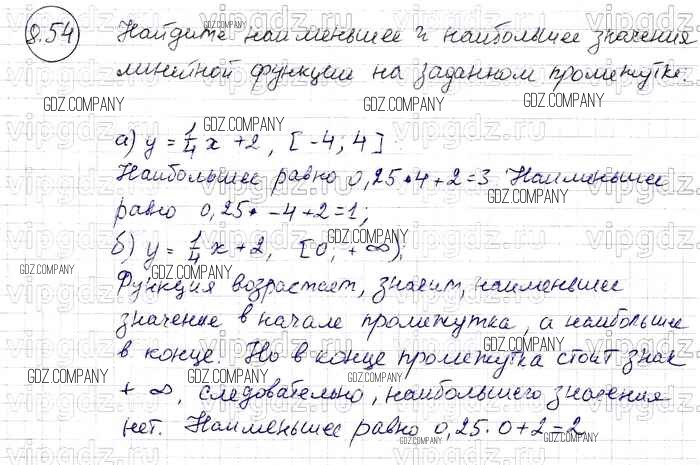 8.54 Найдите наименьшее и наибольшее значения
линейной функции на заданном промежутке.
а) y = 1/4 x + 2, [-4; 4]
Наибольшее равно 0,25•4+2=3 Наименьшее
равно 0,25•-4+2=1;
б) y = 1/4 x + 2, [0; +∞),
Функция возрастает, значит, наименьшее
значение в начале промежутка, а наибольшее
в конце. Но в конце промежутка стоит знак
+ ∞, следовательно, наибольшего значения
нет. Наименьшее равно 0,25·0+2=2
GDZ.COMPANY
vipgdz.com